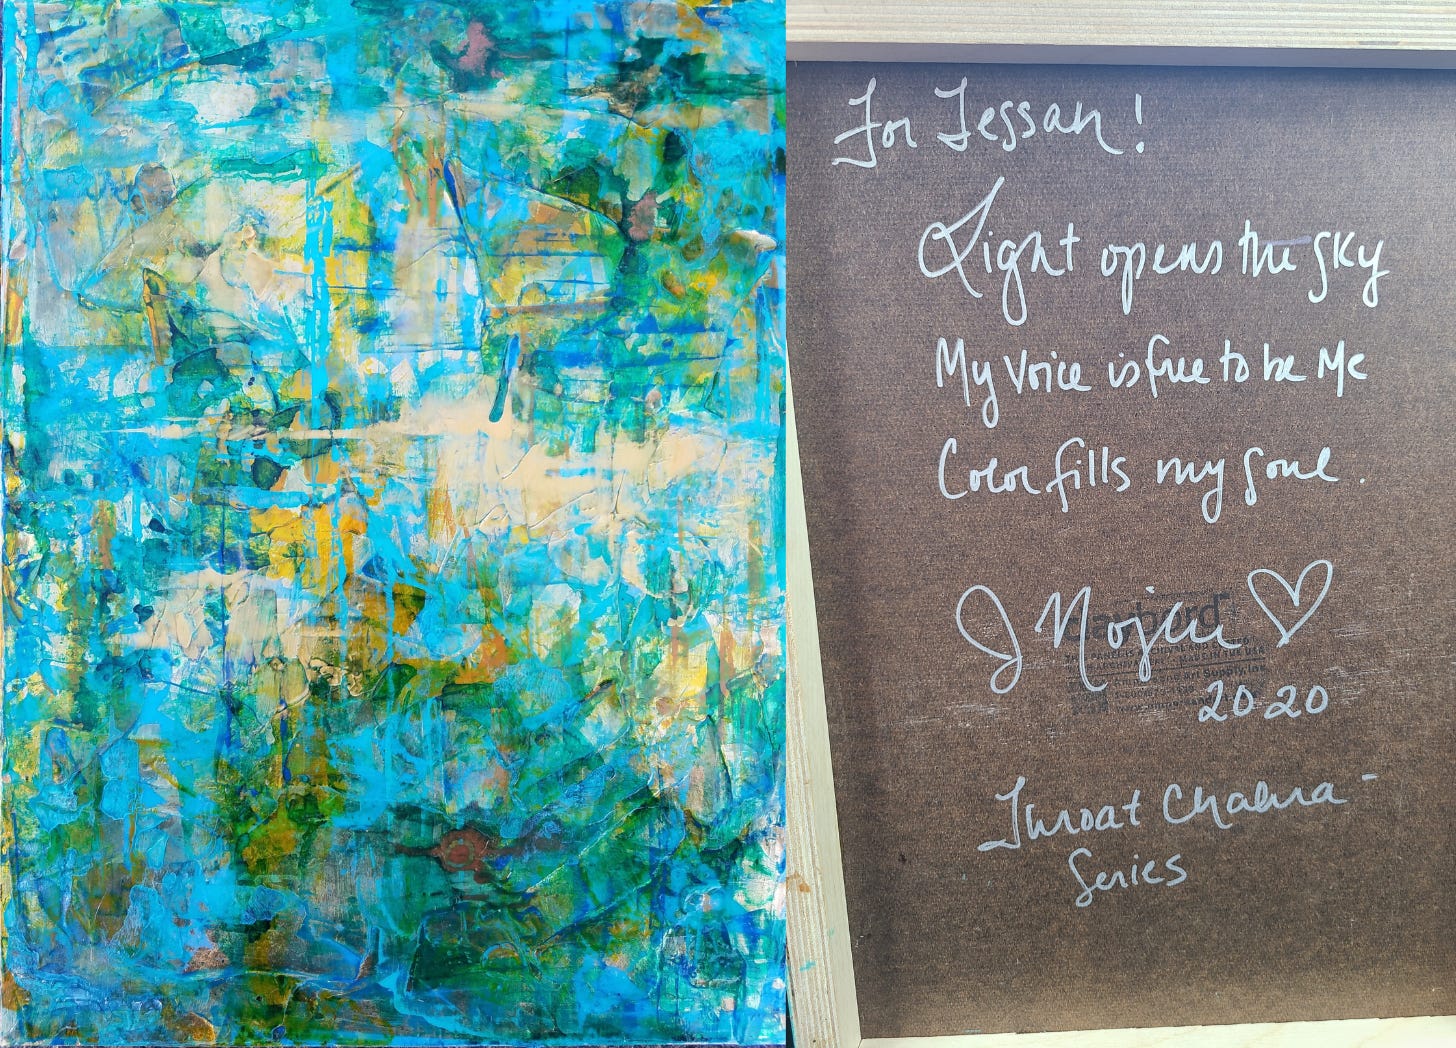 For Tessah!
Light opens the sky
My voice is free to be Me
Color fills my soul.
J Nojeu
2020
Throat Chakra -
Series